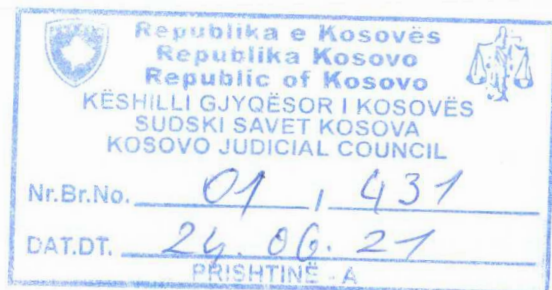 Republika e Kosovës
Republika Kosovo
Republic of Kosovo
KËSHILLI GJYQËSOR I KOSOVËS
SUDSKI SAVET KOSOVA
KOSOVO JUDICIAL COUNCIL
Nr.Br.No. 01 / 431
DAT.DT. 24.06.21
PRISHTINË - A